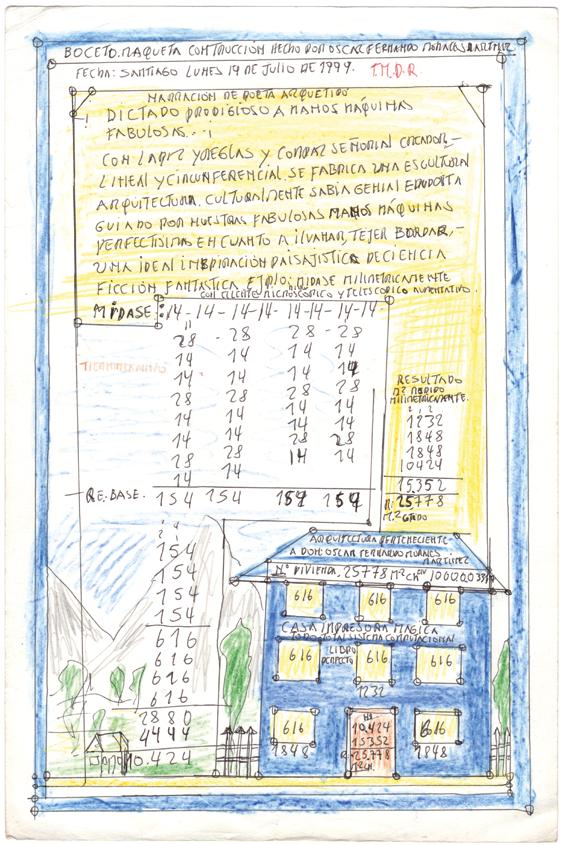 BOCETO. MAQUETA CONTRUCCIÓN HECHO POR OSCAR FERNANDO MORALES MARTINEZ
FECHA: SANTIAGO LUNES 19 DE JULIO DE 1999. T.M.D.R.
NARRACIÓN DE POETA ARQUETIPO
DICTADO PRODIGIOSO A MANOS MÁQUINAS
FABULOSAS
CON LAPIZ Y REGLAS Y COMPAZ SEÑORIAL CREADOR,-
LINEAL Y CIRCUNFERENCIAL. SE FABRICA UNA ESCULTURA
ARQUITECTURA. CULTURALMENTE SABÍA GENIAL
GUIADO POR NUESTRAS FABULOSAS MANOS MÁQUINAS
PERFECTISIMAS EN CUANTO A ILVANAR, TEJER BORDAR,-
UNA IDEAL INSPIRACIÓN PAISAJISTICA DE CIENCIA
FICCIÓN FANTASTICA MIDASE MILIMETRICAMENTE
CON MICROSCOPICO Y TELESCOPICO AUMENTATIVO.
MIDASE: -14-14-14-14-14-14-
28 - 28 28 - 28
14 14 14 14
14 14 14 14
28 28 28 28
14 14 14 14
14 14 14 14
14 14 28 28
28 28 14 14
14 14
RE. BASE. 154 154 154 154
RESULTADO
M² MEDIDO
MILIMETRICAMENTE.
1232
1848
1848
10424
15.352
25778
154
154
154
154
616
616
616
616
2880
4444
10.424
ARQUITECTURA PERTENECIENTE
A DON OSCAR FERNANDO MORALES
MARTINEZ
N° VIVIENDA. 25778 M²
616 616 616
CASA IMPRESORA MAGICA
TODO TOTAL SISTEMA COMPUTACIONAL
LIBRO
PERFECTO
616 616 616
1232
616 616
1848 1848
10.424
15352
25.778